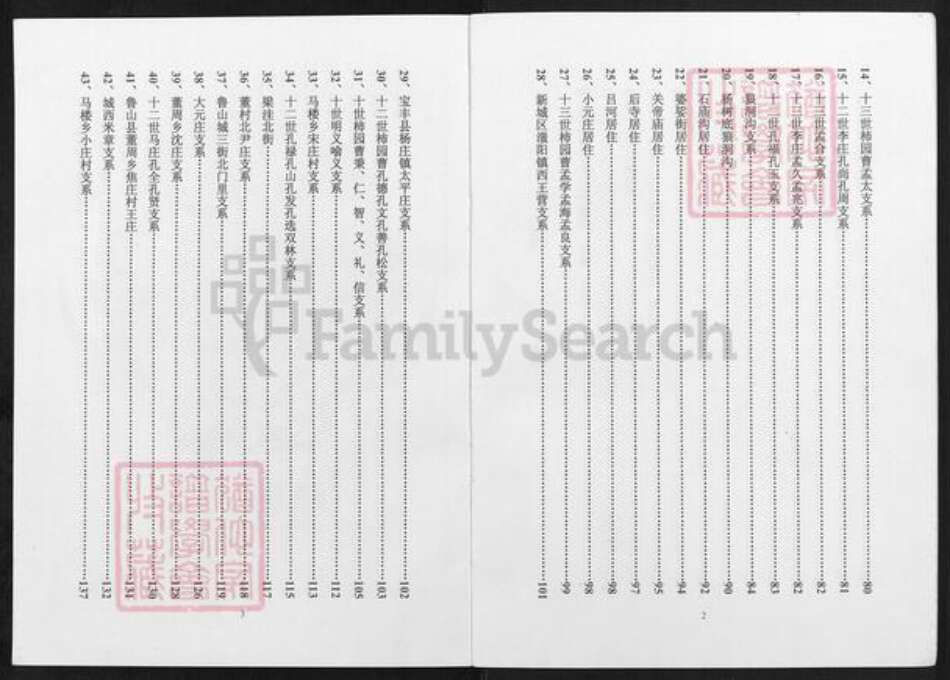 14、十三世柿园曹孟太支系……80
15、十二世李庄孔尚孔周支系……81
16、十三世孟合支系……82
17、十三世李庄孟久孟兆支系……82
18、十二世孔福孔玉支系……83
19、狼洞沟支系……84
20、杨树底狼洞沟……90
21、石庙沟居住……92
22、婆娑街居住……94
23、关帝庙居住……95
24、后寺居住……97
25、吕河居住……98
26、小元庄居住……98
27、十三世柿园曹孟学孟海孟良支系……99
28、新城区滍阳镇西王营支系……101
2
29、宝丰县杨庄镇太平庄支系……102
30、十二世柿园曹孔德孔文孔善孔松支系……103
31、十世柿园曹秉、仁、智、义、礼、信支系……105
32、十世明义喻义支系……112
33、马楼乡宋庄村支系……113
34、十二世孔禄孔山孔发孔选双林支系……115
35、梁洼北街……117
36、董村北尹庄支系……118
37、鲁山城三街北门里支系……119
38、大元庄支系……126
39、董周乡沈庄支系……128
40、十二世马庄孔全孔贤支系……130
41、鲁山县董周乡焦庄村王庄……131
42、城西米章支系……132
43、马楼乡小庄村支系……137
3
FamilySearch